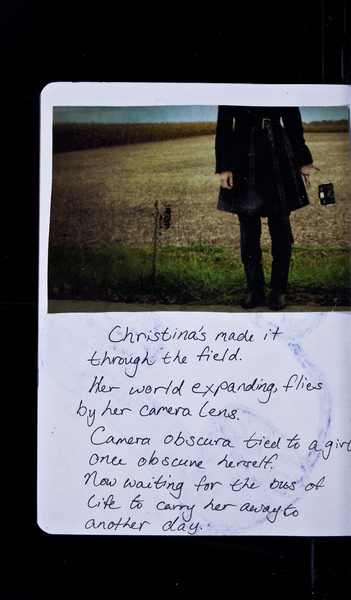 Christina's made it
through the field.
Her world expanding, flies
by her camera lens.
Camera obscura tied to a girl
once obscure herself.
Now waiting for the bus of
life to carry her away to
another day.